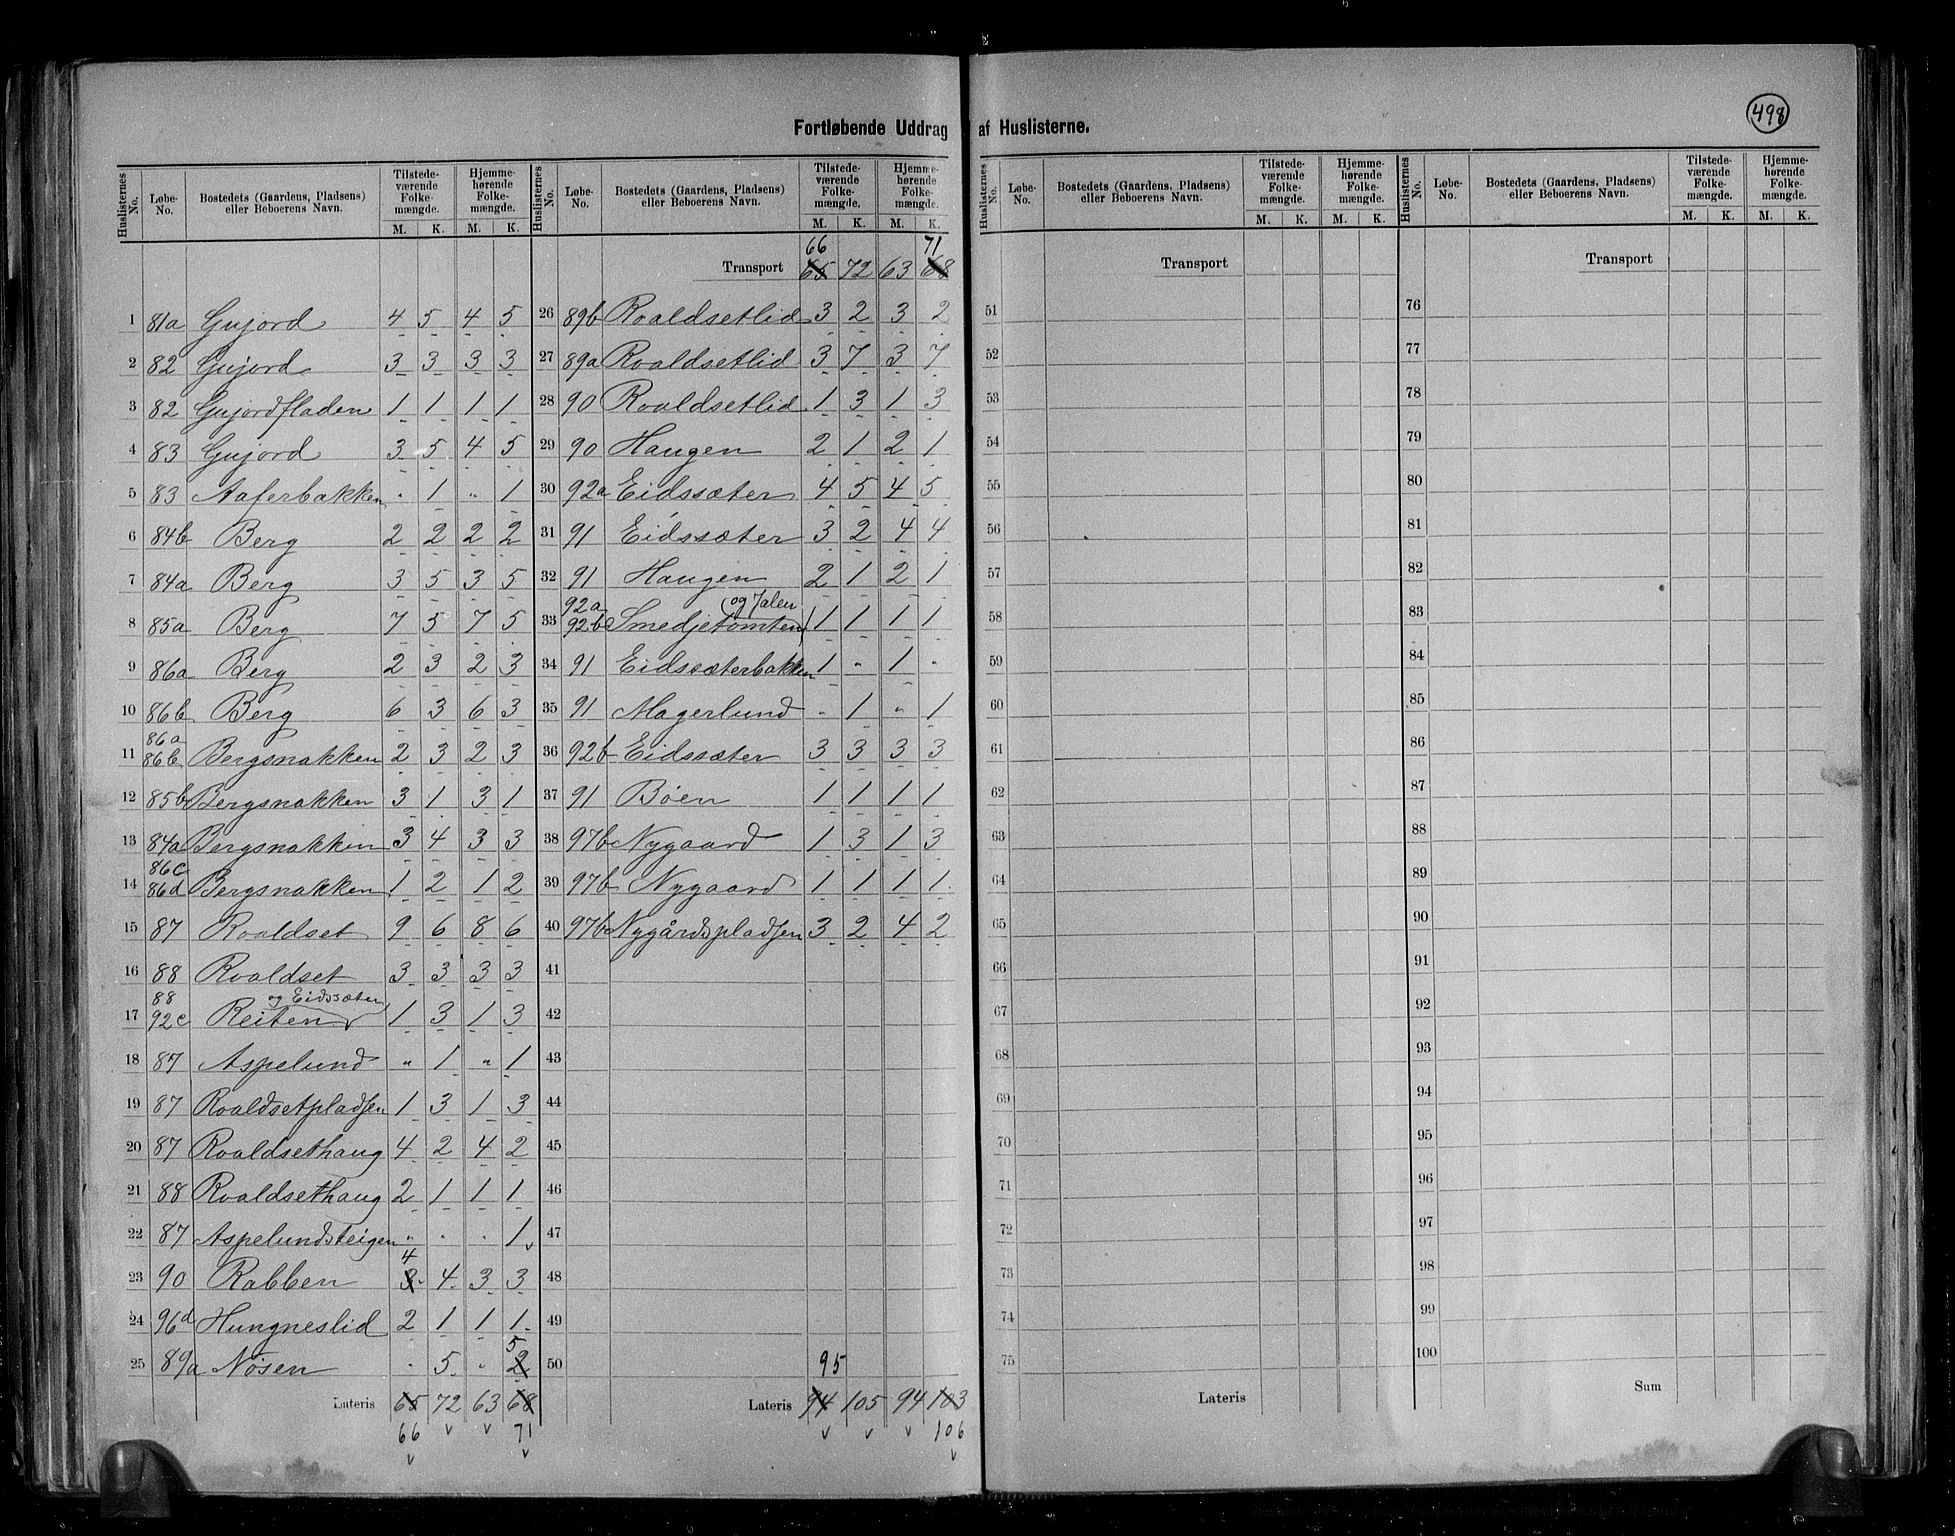 498
Fortløbende Uddrag af Huslisterne.
Huslisternes No. | Løbe-No. | Bostedets (Gaardens, Pladsens) eller Beboerens Navn. | Tilstede-værende Folke-mængde. M. K. | Hjemme-hørende Folke-mængde. M. K.
1 81a Gujord 4 5 4 5
2 82 Gujord 3 3 3 3
3 82 Gujordfladen 1 1 1 1
4 83 Gujord 3 5 4 5
5 83 Aaferbakken " 1 " 1
6 84b Berg 2 2 2 2
7 84a Berg 3 5 3 5
8 85a Berg 7 5 7 5
9 86a Berg 2 3 2 3
10 86b Berg 6 3 6 3
11 86a 86b Bergsnakken 2 3 2 3
12 85b Bergsnakken 3 1 3 1
13 84a Bergsnakken 3 4 3 3
14 86c 86d Bergsnakken 1 2 1 2
15 87 Roaldset 9 6 8 6
16 88 Roaldset 3 3 3 3
17 88 92c Reiten og Eidssæter 1 3 1 3
18 87 Aspelund " 1 " 1
19 87 Roaldsetpladsen 1 3 1 3
20 87 Roaldsethaug 4 2 4 2
21 88 Roaldsethaug 2 1 1 1
22 87 Aspelundsteigen " " " 1
23 90 Rabben 3 4 4 3 3
24 96d Hungneslid 2 1 1 1
25 89a Nøsen " 5 " 2 5
Lateris 65 72 63 68
66 71
Huslisternes No. | Løbe-No. | Bostedets (Gaardens, Pladsens) eller Beboerens Navn. | Tilstede-værende Folke-mængde. M. K. | Hjemme-hørende Folke-mængde. M. K.
66 71
Transport 65 72 63 68
26 89b Roaldsetlid 3 2 3 2
27 89a Roaldsetlid 3 7 3 7
28 90 Roaldsetlid 1 3 1 3
29 90 Haugen 2 1 2 1
30 92a Eidssæter 4 5 4 5
31 91 Eidssæter 3 2 4 4
32 91 Haugen 2 1 2 1
33 92a 92b Smedjetomten og Jalen 1 1 1 1
34 91 Eidssæterbakken 1 " 1 "
35 91 Magerlund " 1 " 1
36 92b Eidssæter 3 3 3 3
37 91 Bøen 1 1 1 1
38 97b Nygaard 1 3 1 3
39 97b Nygaard 1 1 1 1
40 97b Nygårdspladsen 3 2 4 2
41
42
43
44
45
46
47
48
49
50
95
Lateris 94 105 94 103
106
Huslisternes No. | Løbe-No. | Bostedets (Gaardens, Pladsens) eller Beboerens Navn. | Tilstede-værende Folke-mængde. M. K. | Hjemme-hørende Folke-mængde. M. K.
Transport
51
52
53
54
55
56
57
58
59
60
61
62
63
64
65
66
67
68
69
70
71
72
73
74
75
Lateris
Huslisternes No. | Løbe-No. | Bostedets (Gaardens, Pladsens) eller Beboerens Navn. | Tilstede-værende Folke-mængde. M. K. | Hjemme-hørende Folke-mængde. M. K.
Transport
76
77
78
79
80
81
82
83
84
85
86
87
88
89
90
91
92
93
94
95
96
97
98
99
100
Sum